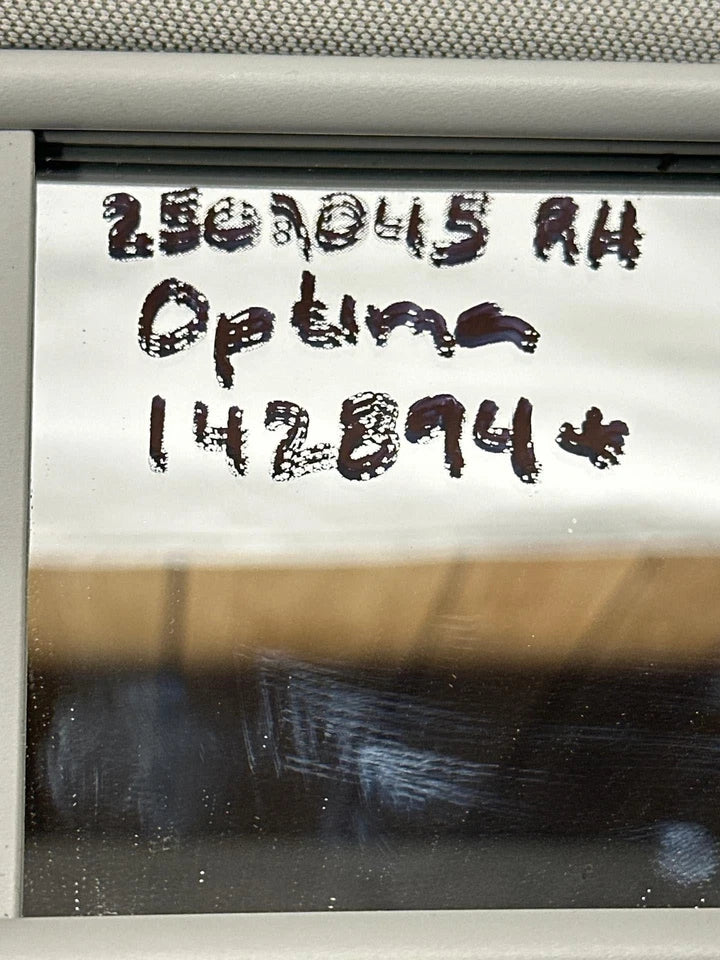 2501045 RH
Optima
142894*